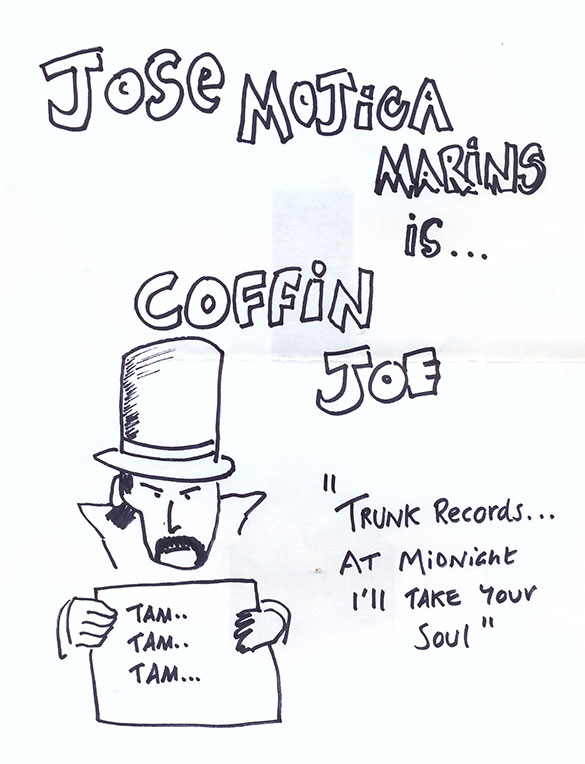 JOSe MOJiCA
MARiNS
is...
COFFiN
JOE
"TRUNK Records...
AT MiDNight
I'll TAKE Your
Soul"
TAM..
TAM..
TAM...